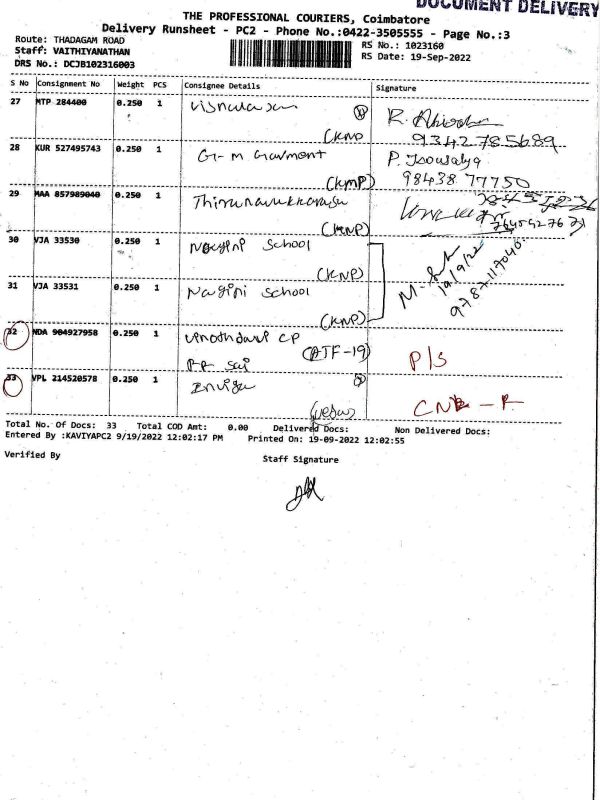 DOCUMENT DELIVERY
THE PROFESSIONAL COURIERS, Coimbatore
Delivery Runsheet - PC2 - Phone No.:0422-3505555 - Page No.:3
Route: THADAGAM ROAD
Staff: VAITHIYANATHAN
DRS No.: DCJB102316003
RS No.: 1023160
RS Date: 19-Sep-2022
S No Consignment No Weight PCS Consignee Details Signature
27 MTP 284400 0.250 1
(KNP
9342785689
28 KUR 527495743 0.250 1 G-M Garment
(KMP)
98438 77750
29 MAA 857989040 0.250 1 Thirunavukkarasu
(KNP)
30 VJA 33530 0.250 1 Nagini School
(KNP)
31 VJA 33531 0.250 1 Nagini School
(KNP)
19/9/22
9787117040
32 NDA 904927958 0.250 1
(ATF-19)
P/S
33 VPL 214520578 0.250 1
Total No. Of Docs: 33 Total COD Amt: 0.00 Delivered Docs: Non Delivered Docs:
Entered By :KAVIYAPC2 9/19/2022 12:02:17 PM Printed On: 19-09-2022 12:02:55
Verified By
Staff Signature